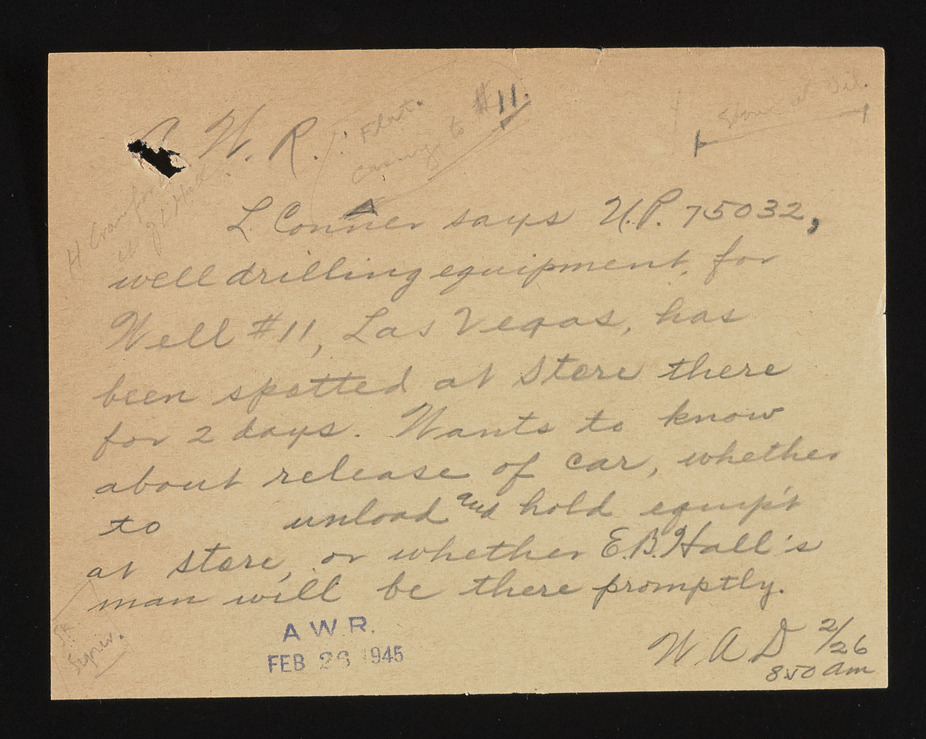 W. R.
#11.
L. Conner says U.P. 75032,
well drilling equipment, for
Well #11, Las Vegas, has
been spotted at Store there
for 2 days. Wants to know
about release of car, whether
to unload and hold equip't
at store, or whether E.B. Hall's
man will be there promptly.
A. W. R.
FEB 26 1945
W A D 2/26
850 am